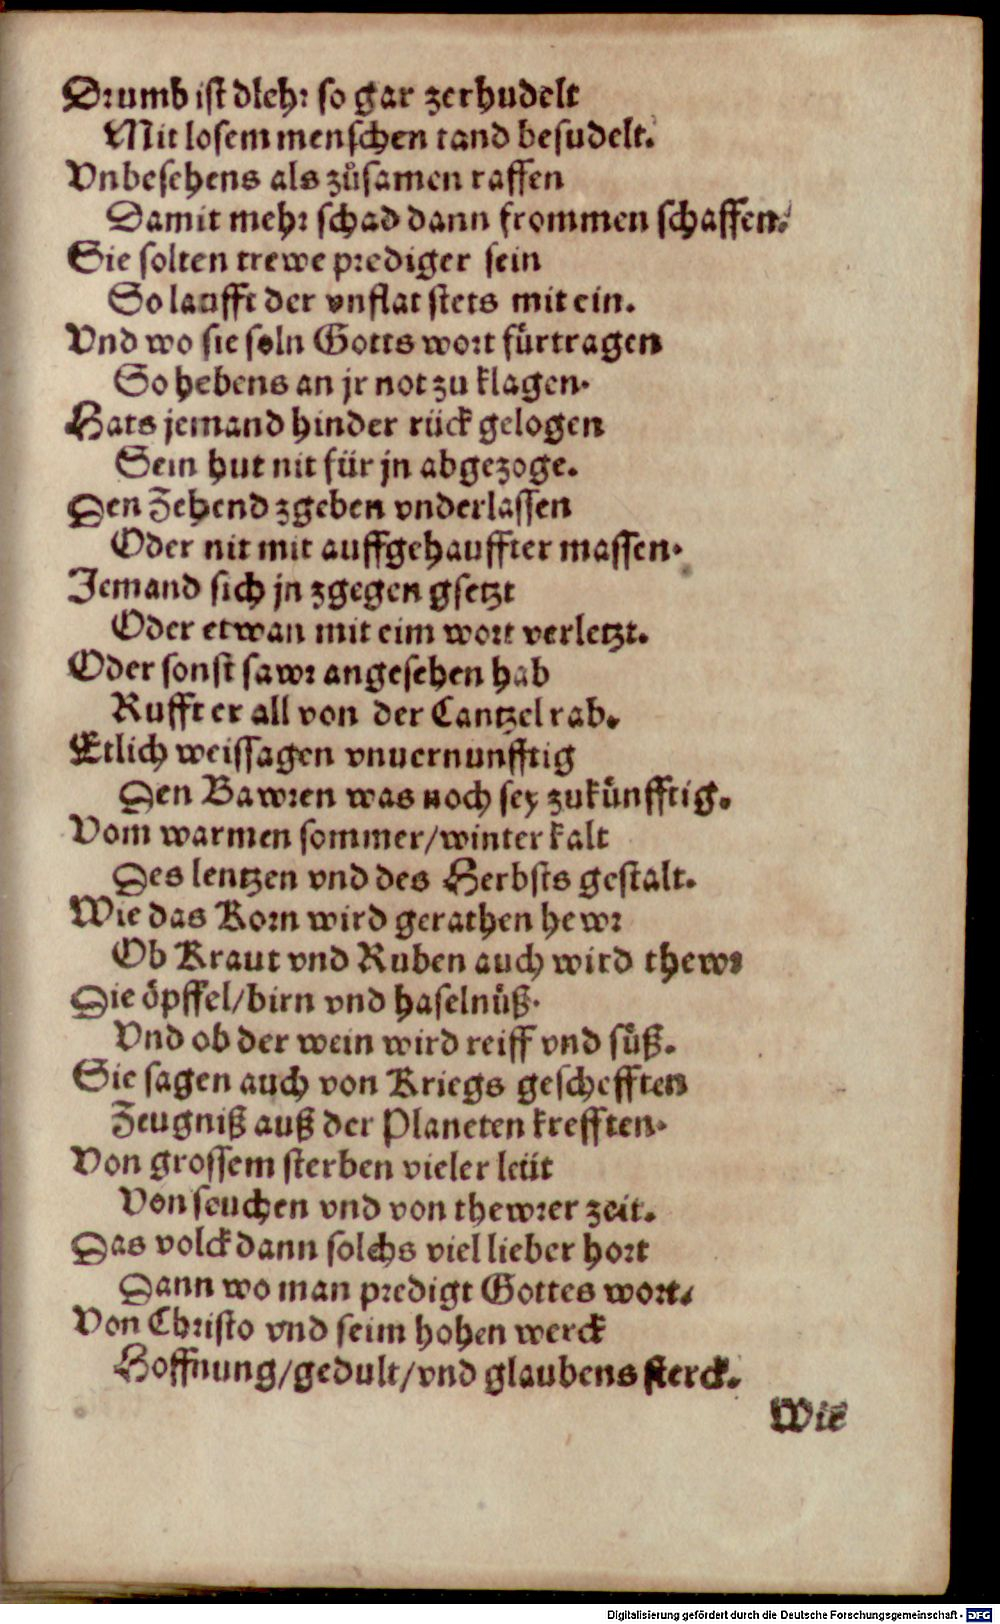 Drumb ist dlehr so gar zerhudelt
Mit losem menschen tand besudelt.
Vnbesehens als zůsamen raffen
Damit mehr schad dann frommen schaffen.
Sie solten trewe prediger sein
So laufft der vnflat stets mit ein.
Vnd wo sie soln Gotts wort fürtragen
So hebens an jr not zu klagen.
Hats jemand hinder rück gelogen
Sein hut nit für jn abgezoge.
Den Zehend zgeben vnderlassen
Oder nit mit auffgehauffter massen.
Jemand sich jn zgegen gsetzt
Oder etwan mit eim wort verletzt.
Oder sonst sawr angesehen hab
Rufft er all von der Cantzel rab.
Etlich weissagen vnuernunfftig
Den Bawren was noch sey zukünfftig.
Vom warmen sommer/winter kalt
Des lentzen vnd des Herbsts gestalt.
Wie das Korn wird gerathen hewr
Ob Kraut vnd Ruben auch wird thewr
Die öpffel/birn vnd haselnüß.
Vnd ob der wein wird reiff vnd süß.
Sie sagen auch von Kriegs geschefften
Zeugniß auß der Planeten krefften.
Von grossem sterben vieler leüt
Von seuchen vnd von thewrer zeit.
Das volck dann solchs viel lieber hort
Dann wo man predigt Gottes wort.
Von Christo vnd seim hohen werck
Hoffnung/gedult/vnd glaubens sterck.
Wie
Digitalisierung gefördert durch die Deutsche Forschungsgemeinschaft - DFG